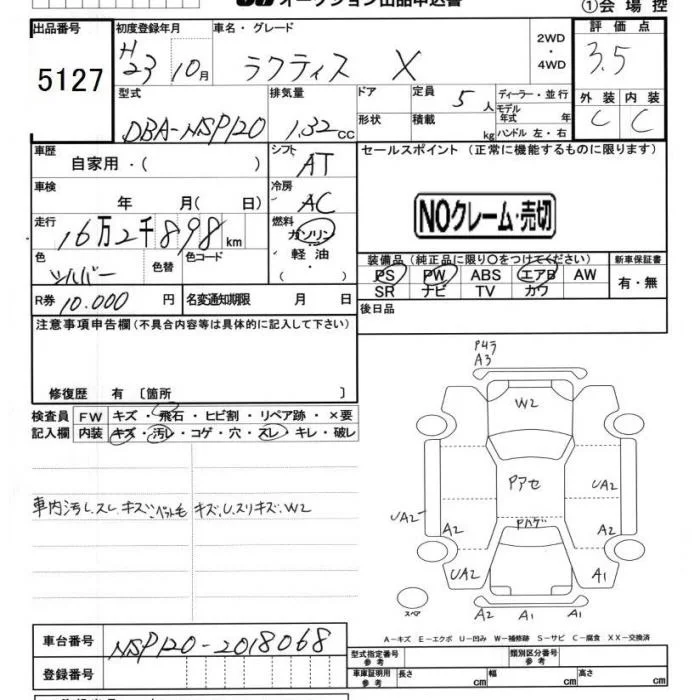 オークション出品申込書
①会場控
出品番号
5127
初度登録年月
H23 10月
車名・グレード
ラクティス X
2WD
・
4WD
評価点
3.5
型式
DBA-NSP120
排気量
1.32 CC
ドア
形状
定員 5 人
積載 kg
ディーラー・並行
モデル年式 年
ハンドル 左・右
外装
C
内装
C
車歴
自家用・( )
シフト
AT
セールスポイント (正常に機能するものに限ります)
車検
年 月( 日)
冷房
AC
NOクレーム・売切
走行
16万2千898km
燃料
ガソリン
軽油
( ・ )
色
シルバー
色替
色コード
装備品(純正品に限り○をつけてください)
PS PW ABS エアB AW
SR ナビ TV カワ
新車保証書
有・無
R券 10.000 円
名変通知期限 月 日
後日品
注意事項申告欄(不具合内容等は具体的に記入して下さい)
修復歴 有 〔箇所 〕
検査員
記入欄
FW キズ・飛石・ヒビ割・リペア跡・×要
内装 キズ・汚レ・コゲ・穴・スレ・キレ・破レ
車内汚レ.スレ.キズ.ペット毛 キズ.U.スリキズ.W2
A3
W2
Pアセ
Pハゲ
UA2
UA2
A2
A2
UA2
A1
スペア
A2 A1 A1
A-キズ E-エクボ U-凹み W-補修跡 S-サビ C-腐食 XX-交換済
車台番号
NSP120-2018068
登録番号
型式指定番号
参考
類別区分番号
参考
車庫証明用
参考
長さ cm
幅 cm
高さ cm